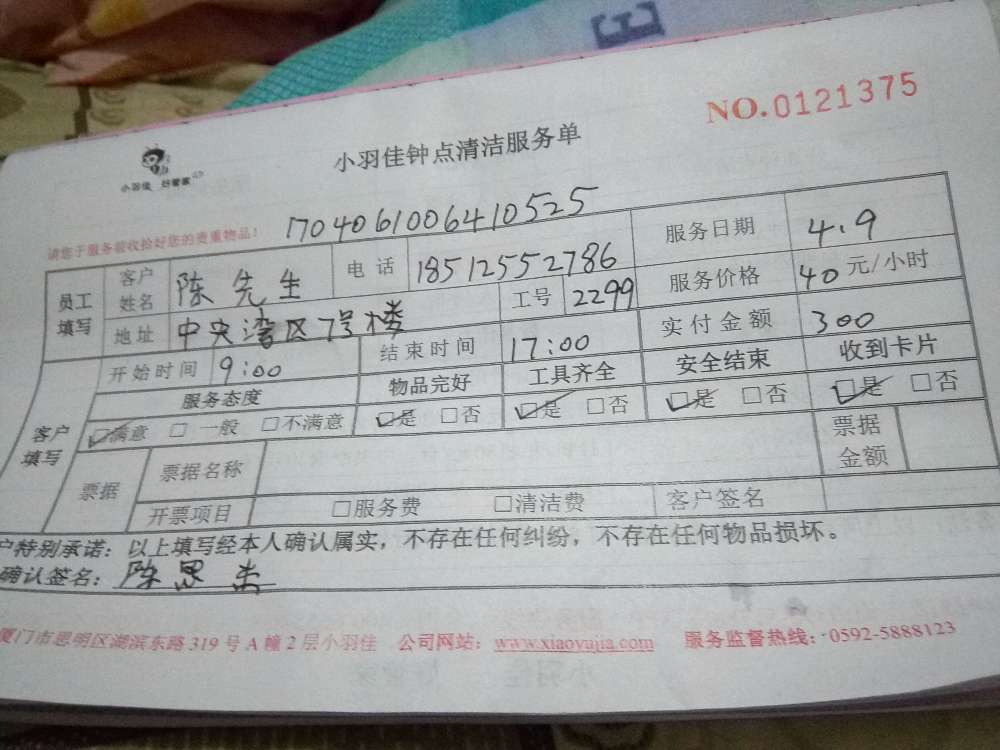 E
NO.0121375
小羽佳 好管家
小羽佳钟点清洁服务单
请您于服务前收拾好您的贵重物品！ 1704061006410525
员工填写 客户姓名 陈先生 电话 18512552786 服务日期 4.9
地址 中央湾区7号楼 工号 2299 服务价格 40元/小时
客户填写 开始时间 9:00 结束时间 17:00 实付金额 300
服务态度 物品完好 工具齐全 安全结束 收到卡片
☑满意 □一般 □不满意 ☑是 □否 ☑是 □否 ☑是 □否 ☑是 □否
票据 票据名称 票据金额
开票项目 □服务费 □清洁费 客户签名
户特别承诺：以上填写经本人确认属实，不存在任何纠纷，不存在任何物品损坏。
确认签名：陈思杰
厦门市思明区湖滨东路319号A幢2层小羽佳 公司网站：www.xiaoyujia.com 服务监督热线：0592-5888123